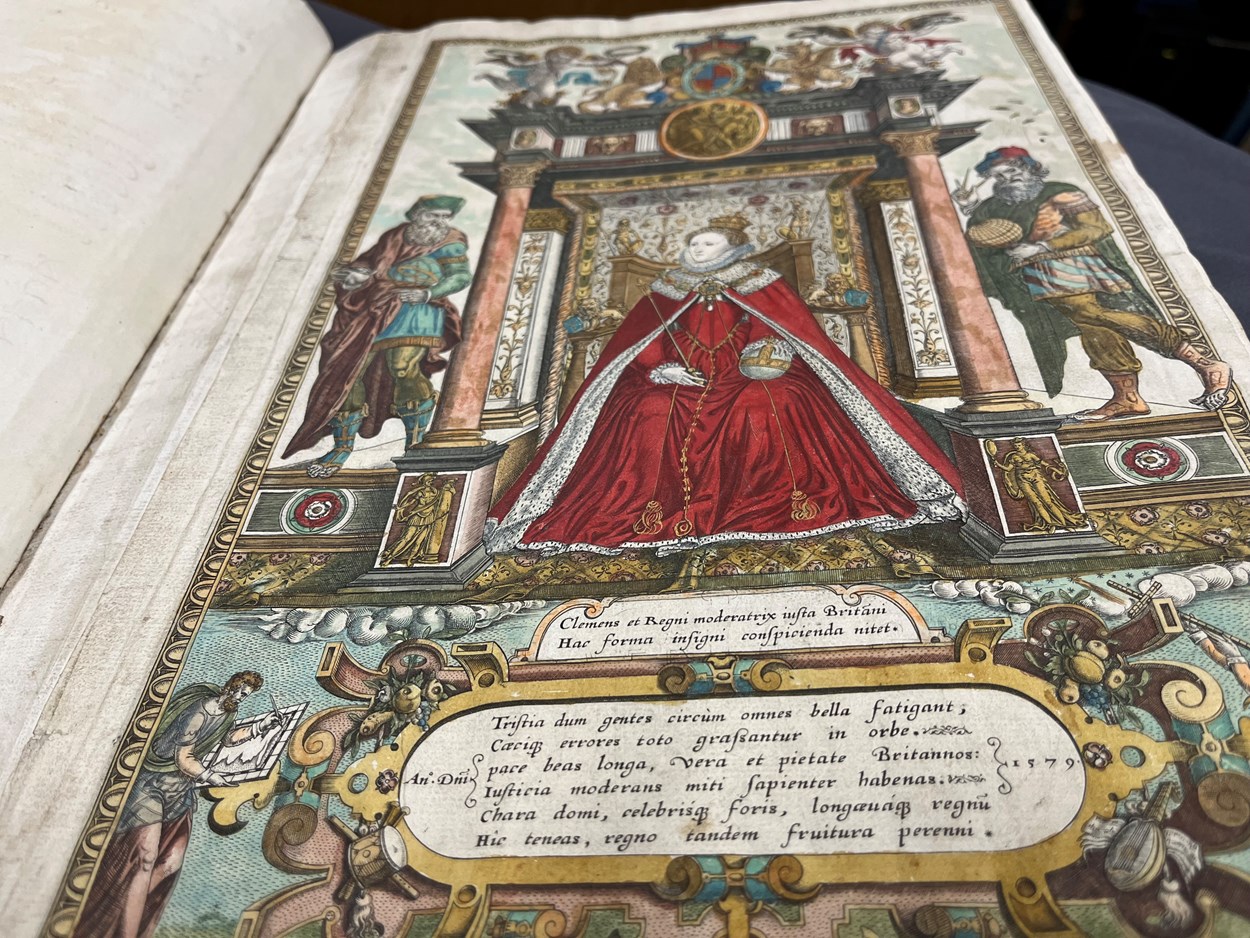 Clemens et Regni moderatrix iusta Britāni
Hac forma insigni conſpicienda nitet.
Triſtia dum gentes circùm omnes bella fatigant;
Cæciq̢ errores toto graſsantur in orbe.
pace beas longa, vera et pietate Britannos:
Iuſticia moderans miti ſapienter habenas.
Chara domi, celebriśq̢ foris, longæuáq̢ regnū
Hîc teneas, regno tandem fruitura perenni.
An̊. Dn̄i
1579.